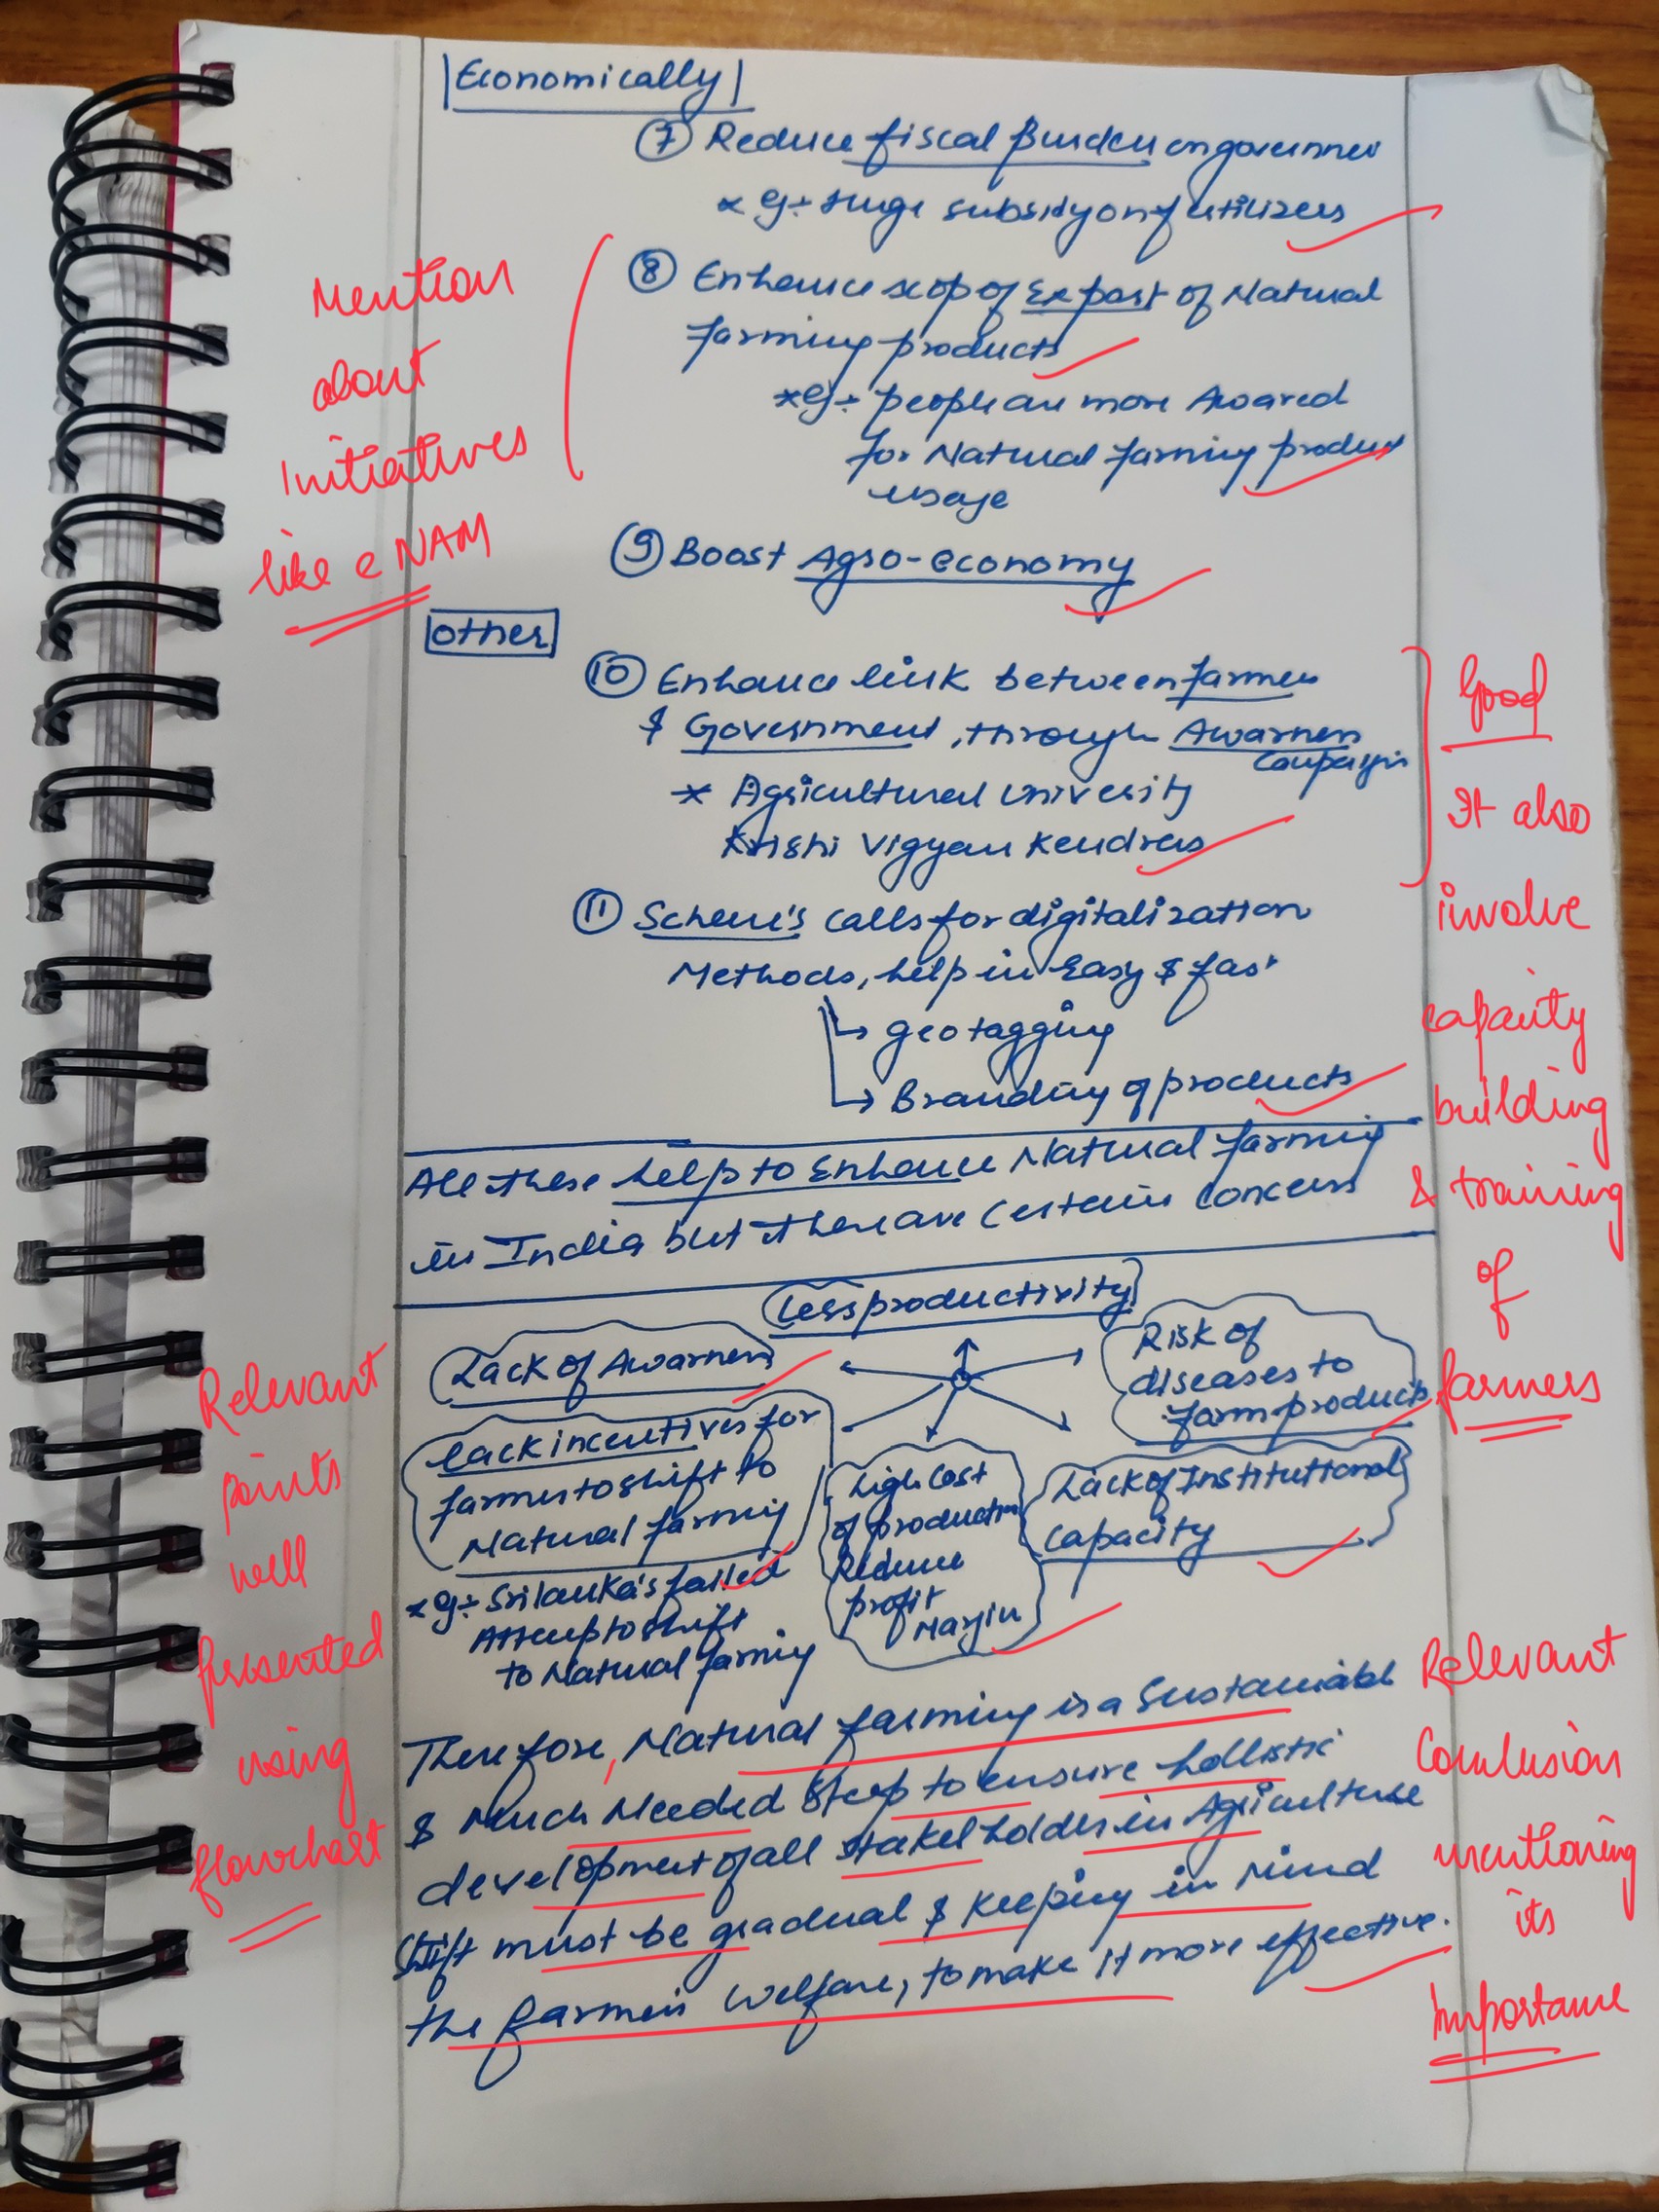 Economically
⑦ Reduce fiscal Burden on governmen
* eg:- Huge subsidy on fertilizers
⑧ Enhance scop of Export of Natural
farming products
* eg:- people are more Awared
for Natural farming product
usage
⑨ Boost Agro-economy
Mention
about
initiatives
like eNAM
Other
⑩ Enhance link between farmers
& Government, through Awarness
Campaign
* Agricultural University
Krishi Vigyan Kendras
⑪ Scheme's calls for digitalization
Methods, help in Easy & fast
↳ geotagging
↳ Branding of products
Good
It also
involve
capacity
building
& training
of
farmers
All these help to Enhance Natural farming
in India but there are certain concerns
Less productivity
Lack of Awarness
Risk of
diseases to
farm products
Lack incentives for
farmer to shift to
Natural farming
* eg:- Srilanka's failed
Attempt to shift
to Natural farming
High Cost
of production
Reduce
profit
Margin
Lack of Institutional
Capacity
Relevant
points
well
presented
using
flowchart
Therefore, Natural farming is a Sustainable
& Much Needed Step to ensure hollistic
development of all stakeholder in Agriculture
Shift must be gradual & keeping in Mind
the farmers welfare, to make it more effective.
Relevant
Conclusion
mentioning
its
importance